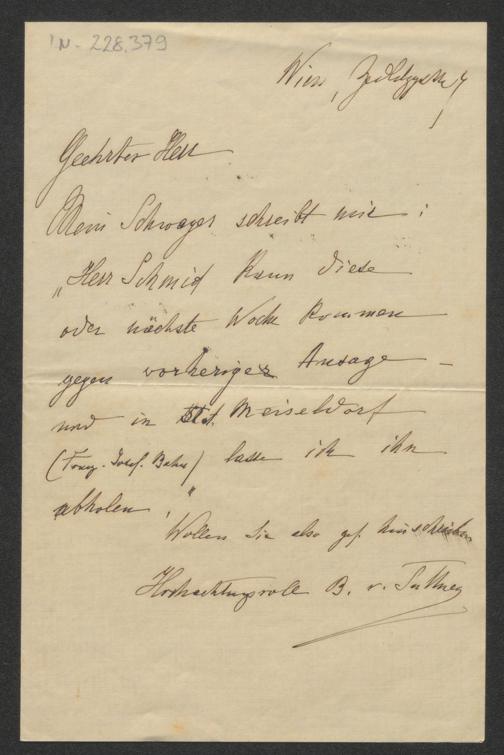 IN- 228.379
Wien, Zedlitzgasse 7
Geehrter Herr
Mein Schwager schreibt mir:
„Herr Schmid kann diese
oder nächste Woche kommen
gegen vorheriger Ansage –
und in Stat. Meiseldorf
(Franz. Josef. Bahn) lasse ich ihn
abholen."
Wollen Sie also gef. hinschreiben
Hochachtungsvoll B. v. Suttner